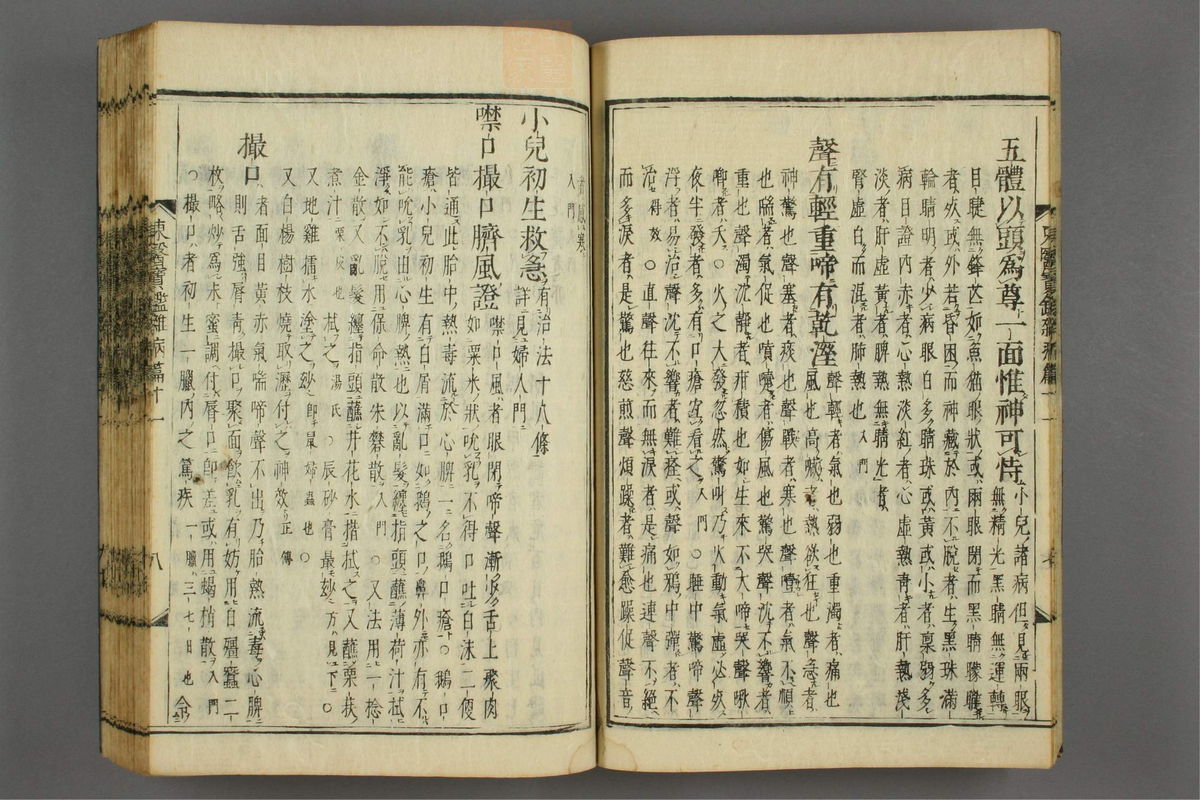 五體以頭爲尊一面惟神可恃 小兒諸病但見兩眼
無精光黑睛無運轉
目睫無鋒芒如魚猫眼狀或兩眼閉而黑睛朦朧
者死或外若昏困而神藏於內不脫者生黑珠滿
輪睛明者少病眼白多睛珠或黃或小者稟弱多
病目證內赤者心熱淡紅者心虛熱靑者肝熱淺
淡者肝虛黃者脾熱無睛光者
腎虛白而混者肺熱也入門
聲有輕重啼有乾溼 聲輕者氣也弱也重濁者痛也
風也高喊者熱欲狂也聲急者
神驚也聲塞者痰也聲戰者寒也聲噎者氣不順
也喘者氣促也噴嚏者傷風也驚哭聲沈不響者
重也聲濁沈靜者疳積也如生來不大啼哭聲啾
喞者夭○火之大發忽然驚叫乃火動氣虛必死
夜半發者多有口瘡宜看之入門○睡中驚啼聲
浮者易治聲沈不響者難痊或聲如鴉中彈者不
治得效○直聲往來而無淚者是痛也連聲不絕
而多淚者是驚也慈煎聲煩躁者難愈躁促聲音
入門
小兒初生救急 有治法十八條
詳見婦人門
噤口撮口臍風證 噤口風者眼閉啼聲漸少舌上聚肉
如粟米狀吮乳不得口吐白沫二便
皆通此胎中熱毒流於心脾一名鵝口瘡○鵝口
瘡小兒初生有白屑滿口如鵝之口鼻外亦有不
能吮乳由心脾熱也以亂髮纏指頭蘸薄荷汁拭
淨如不脫用保命散朱礬散入門○又法用一捻
金散又亂髮纏指頭蘸井花水揩拭之又蘸栗荴
煮汁栗皮也拭之湯氏○辰砂膏最妙方見下○
又地雞擂水塗之妙卽鼠婦蟲也○
又白楊樹枝燒取瀝付之神效正傳
撮口 者面目黃赤氣喘啼聲不出乃胎熱流毒心脾
則舌強脣靑撮口聚面飮乳有妨用白殭蠶二
枚略炒爲末蜜調付脣口卽差或用蝎梢散入門
○撮口者初生一臘內之篤疾一臘三七日也令
東醫寶鑑雜病篇十一
八